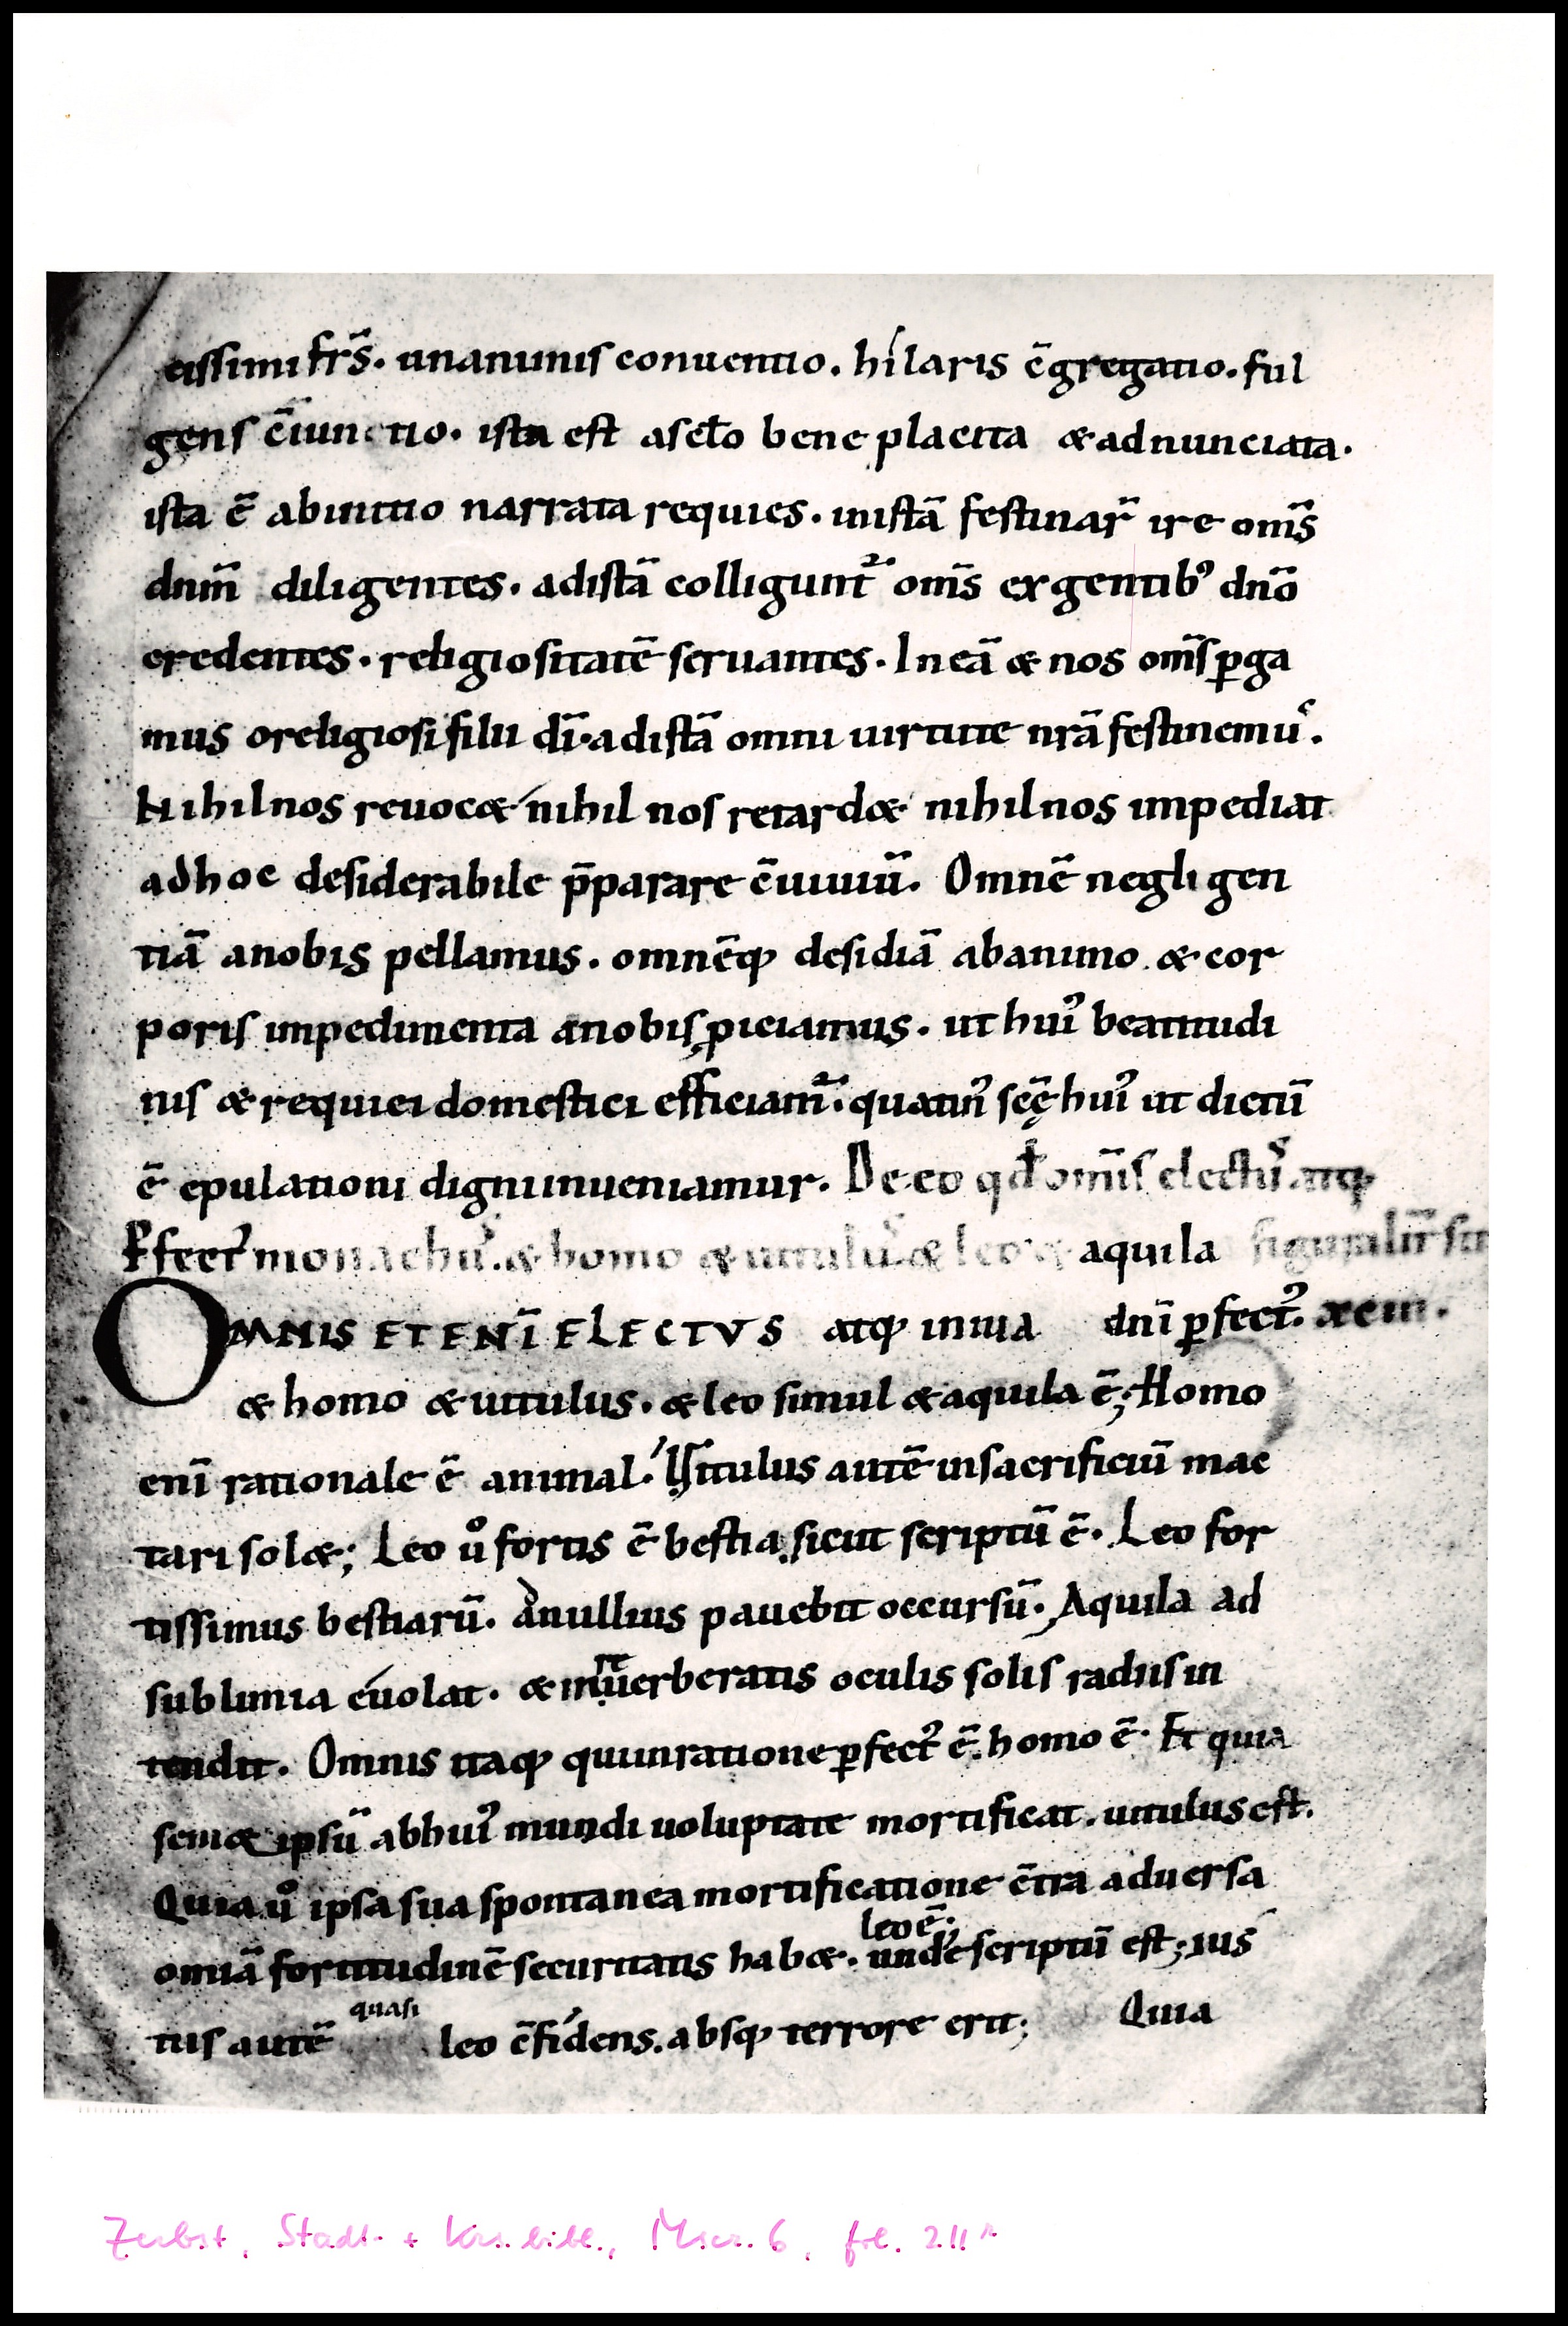 cissimi frs̄. unanimis conuentio. hilaris c̄gregatio. ful
gens c̄iunctio. ista est a sc̄lo bene placita & adnunciata.
ista ē abinitio narrata requies. inistā festinar̄ ire om̄s
dnm̄ diligentes. adistā colligunt̄ om̄s exgentibꝰ dnō
credentes. religiositatē seruantes. In eā & nos om̄s ꝑga
mus oreligiosi filii dī. adistā omni uirtute nrā festinemus.
Nihil nos reuoc& nihil nos retard& nihil nos impediat
adhoc desiderabile p̄parare c̄uiuiū. Omnē negligen
tiā anobis pellamus. omnēqꝫ desidiā abanimo & cor
poris impedimenta anobis ꝓiciamus. ut huiꝰ beatitudi
nis & requiei domestici efficiam̄. quatinꝰ sc̄ę huiꝰ ut dictū
ē epulationi digni inueniamur. De eo qđ om̄is electus atqꝫ
ꝑfectꝰ monachus. & homo & uitulus & leo & aquila figuralit̄ sit
OMNIS ETENĪ ELECTVS atqꝫ inuia dnī ꝑfectꝰ. xciii.
& homo & uitulus. & leo simul & aquila ē; Homo
enī rationale ē animal. Vitulus autē insacrificiū mac
tari sol&; Leo ůfortis ē bestia, sicut scriptū ē. Leo for
tissimus bestiarū. Anullius pauebit occursū. Aquila ad
sublimia euolat. & inreuerberatis oculis solis radiis in
tendit. Omnis itaqꝫ qui inratione ꝑfectꝰ ē. homo ē. Et quia
sem& ipsū abhuiꝰ mundi uoluptate mortificat. uitulus est.
Quia ů ipsa sua spontanea mortificatione c̄tra aduersa
leo ē;
omiā fortitudinē securitatis hab&. unde scriptū est; ius
quasi
tus autē leo c̄fidens. absqꝫ terrore erit; Quia
Zerbst, Stadt- + Krs. bibl., Mscr. 6, fol. 211r